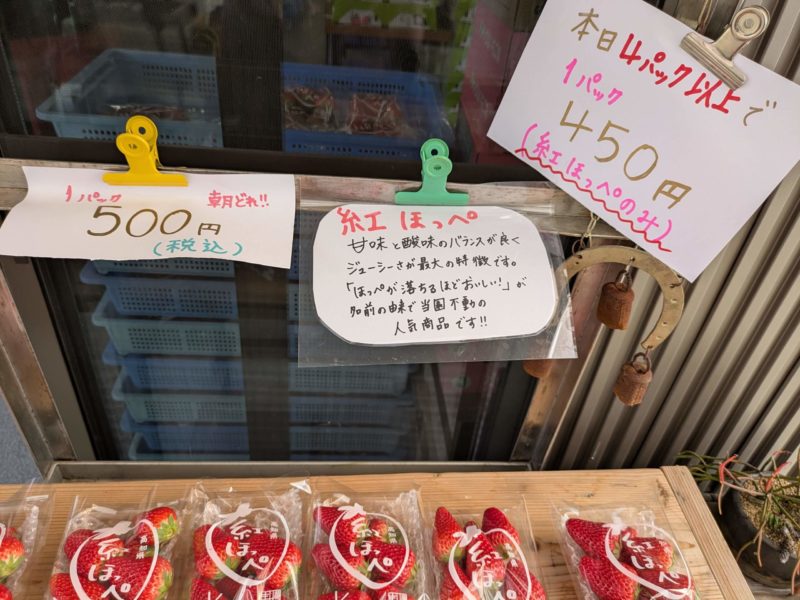 本日4パック以上で
1パック
450円
(紅ほっぺのみ)
1パック 朝どれ!!
500円
(税込)
紅ほっぺ
甘味と酸味のバランスが良く
ジューシーさが最大の特徴です。
「ほっぺが落ちるほどおいしい!」が
名前の由来で当園不動の
人気商品です!!
紅ほっぺ
紅ほっぺ
紅ほっぺ
紅ほっぺ
紅ほっぺ